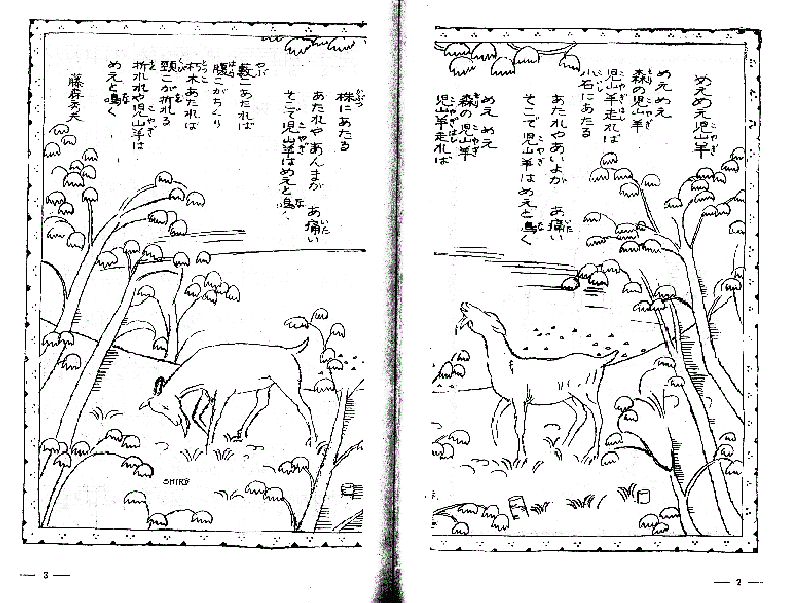 めえめえ児山羊
めえめえ
森の児山羊
児山羊走れば
小石にあたる
あたれやあいよが あ痛い
そこで児山羊はめえと鳴く
めえ めえ
森の児山羊
児山羊走れば
— 2 —
株にあたる
あたれやあんまが あ痛い
そこで児山羊はめえと鳴く
藪こあたれば
腹こがちくり
朽木あたれば
頸こが折れる
折れれや児山羊は
めえと鳴く
藤森秀夫
SHIRO
— 3 —